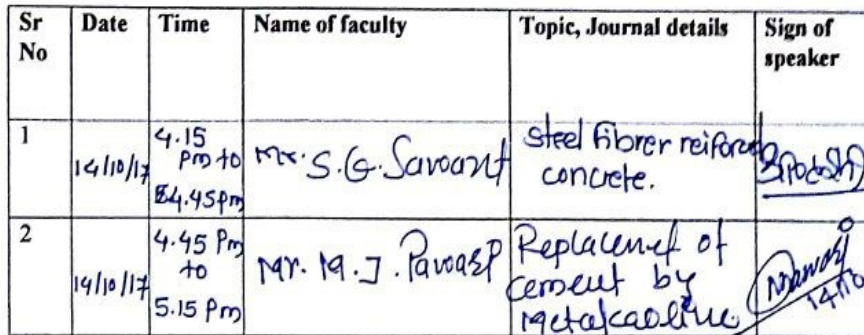 Sr No Date Time Name of faculty Topic, Journal details Sign of speaker
1 14/10/17 4.15 Pm to 4.45 pm Mr. S. G. Savoant Steel Fibrer reiforced concrete.
2 14/10/17 4.45 Pm to 5.15 Pm Mr. M. J. Pavoar Replacement of cement by Metakaoline